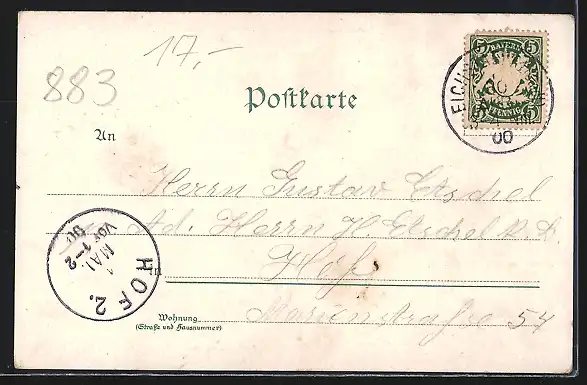 17.-
883
BAYERN
5 5
PFENNIG
00
Postkarte
An
Herrn Gustav Etschel
Ad. Herrn H. Etschel
Hof
Marienstraße 54
Wohnung
(Straße und Hausnummer)
HOF 2.
1
MAI
Vor 1-2
00